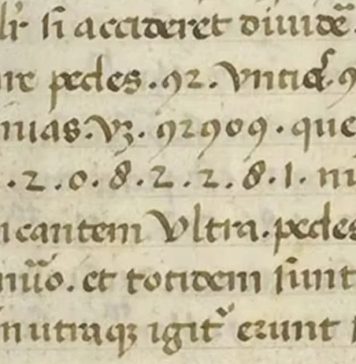 si accideret diuidē
re pedes . 92 . Vntię . 9
nuas . Vꝫ . 92909 . que
. 2 . 0 . 8 . 2 . 2 . 8 . 1 . ni
icantem Vltra . pedes
. et totidem sunt
utraqꝫ igit᷑ erunt